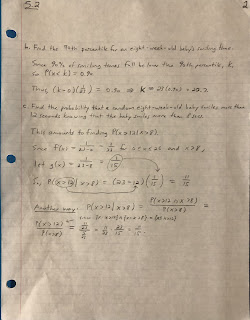 5.2
2
b. Find the 90th percentile for an eight-week-old baby's smiling time.
Since 90% of smiling times fall below the 90th percentile, k,
so P(x<k) = 0.90
Thus (k-0)(1/23) = 0.90 ⇒ k = 23(0.90) = 20.7.
c. Find the probability that a random eight-week-old baby smiles more than
12 seconds knowing that the baby smiles more than 8 sec.
This amounts to finding P(x>12|x>8).
Since f(x) =
for 0≤x≤23 and x>8,
let g(x) = 1/(23-8) = (1/15)
So, P(x>12|x>8) = (23-12)(1/15) = 11/15
Another way: P(x>12|x>8) = P(x>12 ∩ x>8)/P(x>8) =
P(x>12)/P(x>8)
= 11/23 · 23/15 = 11/15.